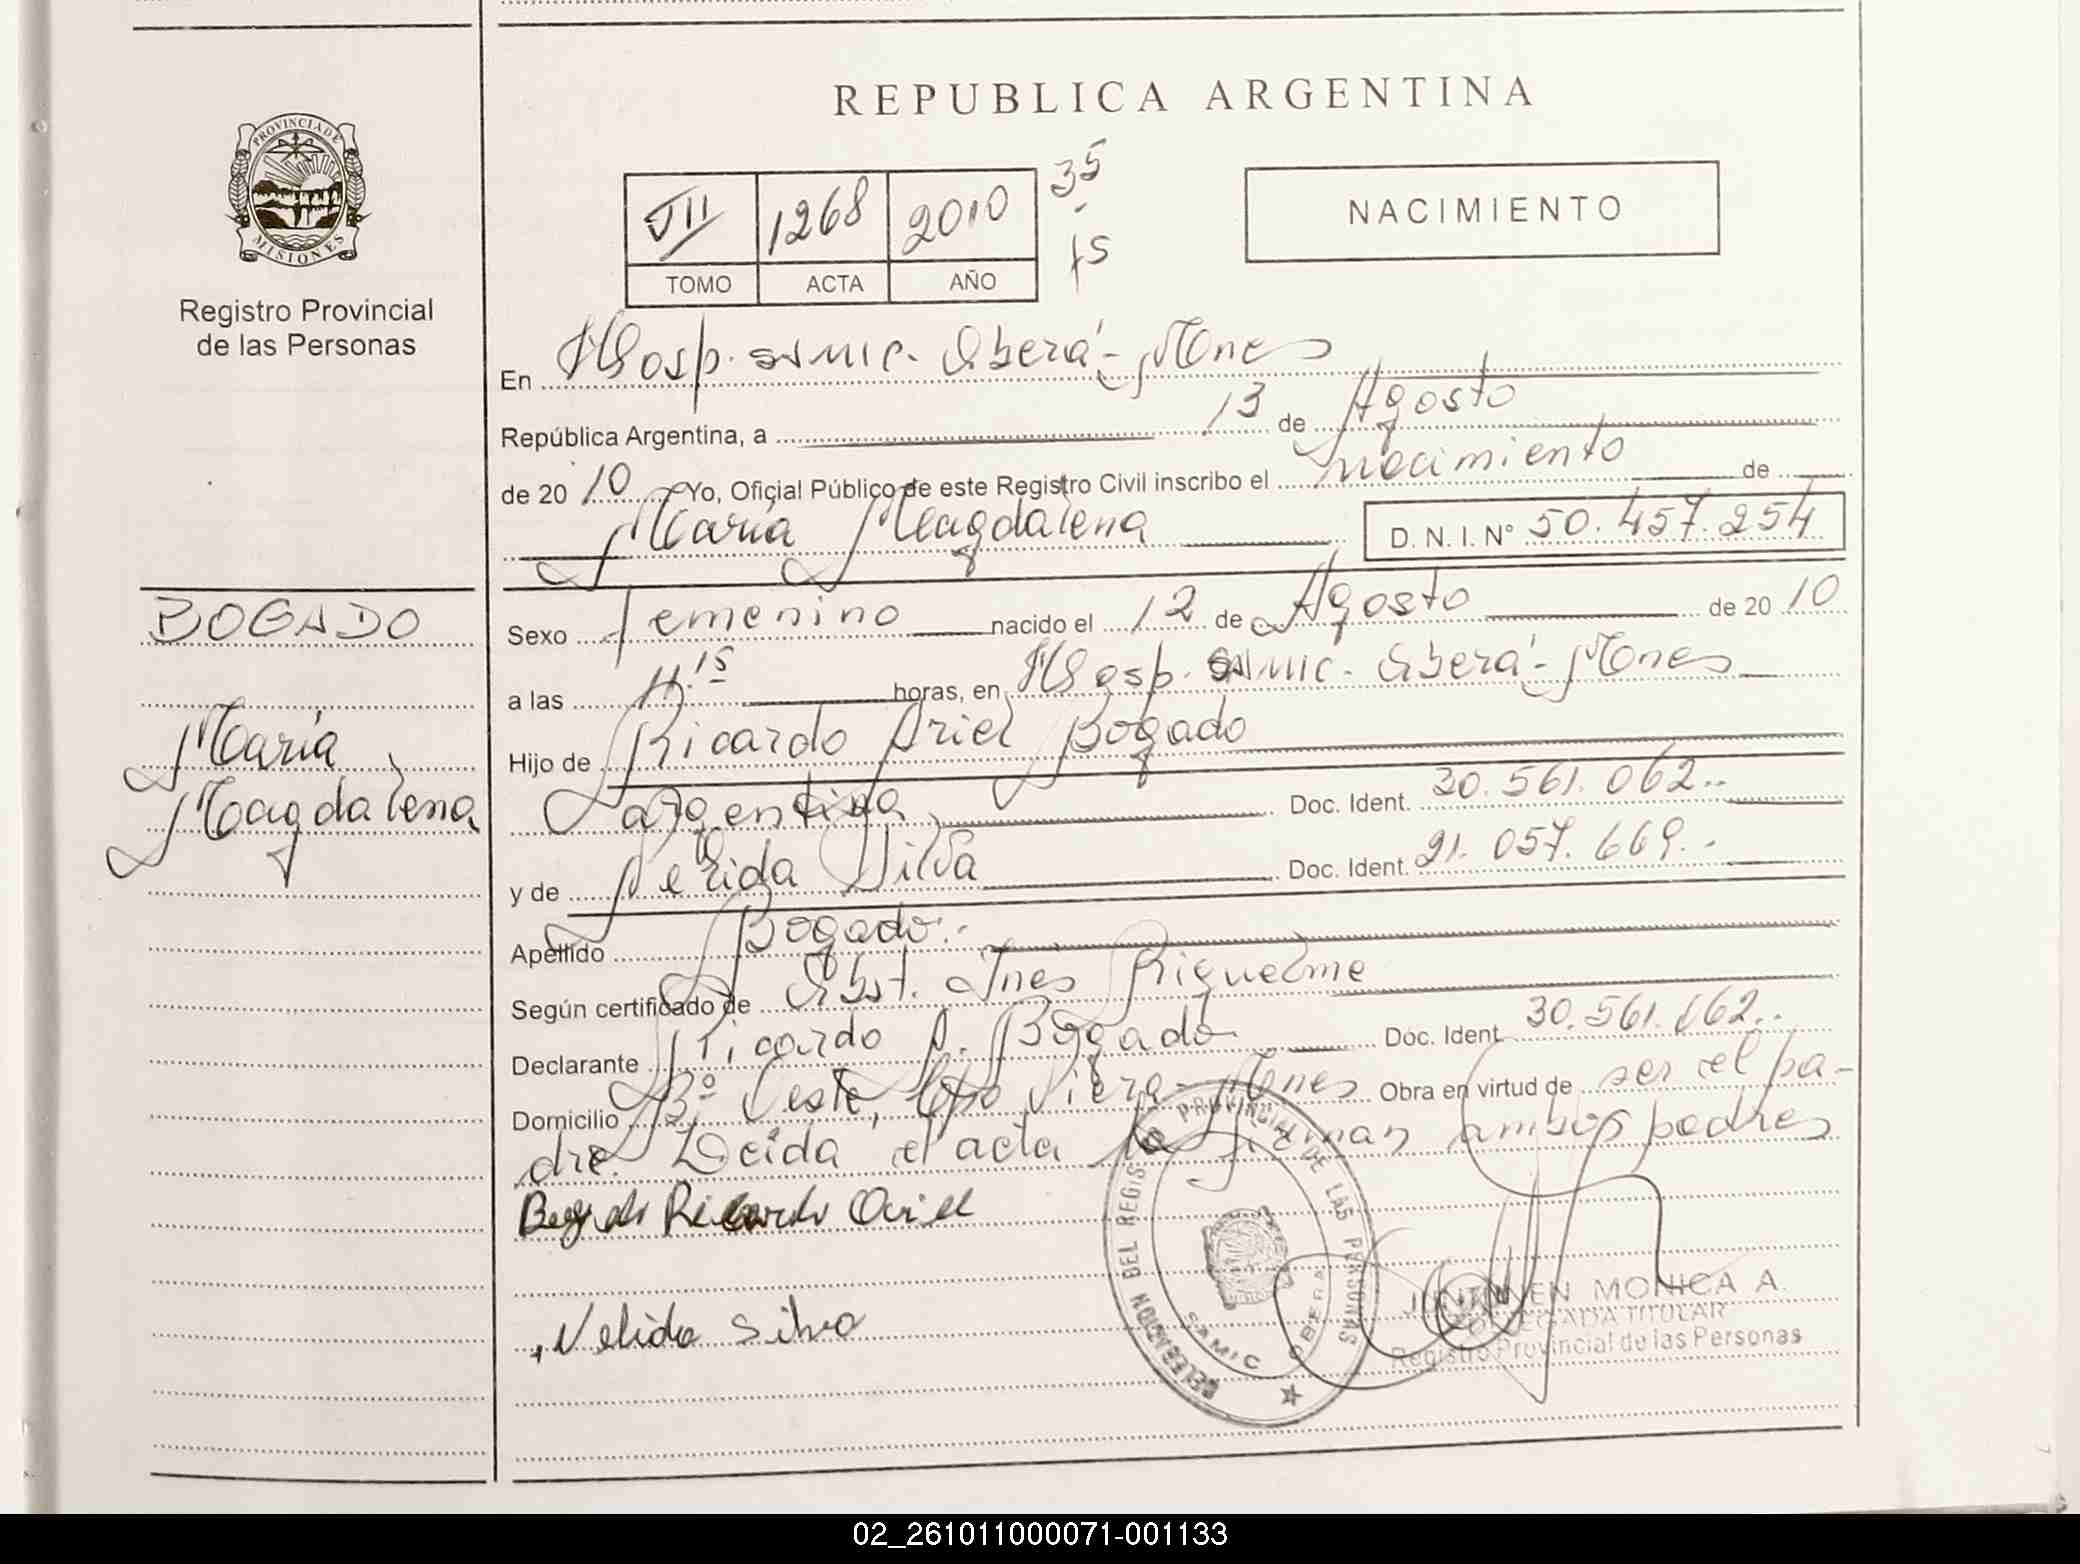 REPUBLICA ARGENTINA
PROVINCIA DE
MISIONES
Registro Provincial
de las Personas
VII 1268 2010
TOMO ACTA AÑO
35
15
NACIMIENTO
En Hosp. SAMIC. Oberá - Mnes
República Argentina, a 13 de Agosto
de 2010 Yo, Oficial Público de este Registro Civil inscribo el nacimiento de
María Magdalena D. N. I. Nº 50.457.254
BOGADO
María
Magdalena
Sexo femenino nacido el 12 de Agosto de 2010
a las 11.15 horas, en Hosp. SAMIC. Oberá - Mnes
Hijo de Ricardo Ariel Bogado
argentina Doc. Ident. 30.561.062..
y de Nélida Silva Doc. Ident. 21.057.669..
Apellido Bogado.-
Según certificado de Obst. Inés Riquelme
Declarante Ricardo A. Bogado Doc. Ident. 30.561.062..
Domicilio Bº Oeste, Cpo Viera - Mnes Obra en virtud de ser el pa-
dre. Leída el acta la firman ambos padres
Bogado Ricardo Ariel
Nelida Silva
DELEGACION DEL REGISTRO PROVINCIAL DE LAS PERSONAS
SAMIC OBERA
MONICA A.
DELEGADA TITULAR
Registro Provincial de las Personas
02_261011000071-001133